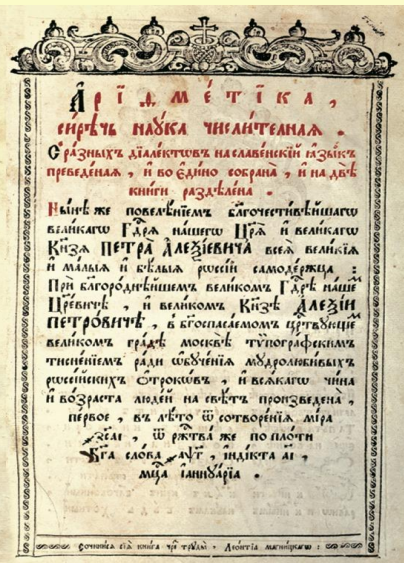 А҆ріѳме́тіка,
сирѣ́чь наꙋ́ка числи́телная.
С̾ ра́зныхъ дїале́ктовъ на славе́нскїй ѧ҆зы́къ
преведе́ная, и҆ во є҆ди́но собрана̀, и҆ на двѣ̀
кни́ги раздѣле́на.
Ны́нѣ же повелѣ́нїемъ бл҃гочести́вѣйшагѡ
вели́кагѡ гд҇рѧ на́шегѡ цр҃ѧ̀ и҆ вели́кагѡ
кн҃зѧ ПЕТРА̀ А҆ЛЕѮІ́ЕВИЧА всеѧ̀ вели́кїѧ
и҆ ма́лыѧ и҆ бѣ́лыѧ рѡссі́и самоде́ржца:
При бл҃горо́днѣйшемъ вели́комъ гд҇рѣ на́шемъ
цр҃е́вичѣ, и҆ вели́комъ кн҃зѣ А҆ЛЕѮІ́И
ПЕТРО́ВИЧѢ, в̾ бг҃оспаса́емомъ ца́рствꙋющемъ
вели́комъ гра́дѣ москвѣ̀ тѷпогра́фскимъ
тисне́нїемъ ра́ди ѡ҆бꙋче́нїѧ мꙋдролюби́выхъ
рѡссі́йскихъ ѻ҆́трокѡвъ, и҆ всѧ́кагѡ чи́на
и҆ во́зраста люде́й на свѣ́тъ произведена̀,
пе́рвое, въ лѣ́то ѿ сотворе́нїѧ мі́ра
҂зса҃і, ѿ рж҇тва̀ же по пло́ти
бг҃а сло́ва ҂аѱг҃, і҆ндї́кта а҃і,
мц҇а і҆аннꙋа́рїа.
Сочини́сѧ сїѧ̀ кни́га чрез̾ трꙋды̀ Леѻ́нтїа Магни́цкагѡ: